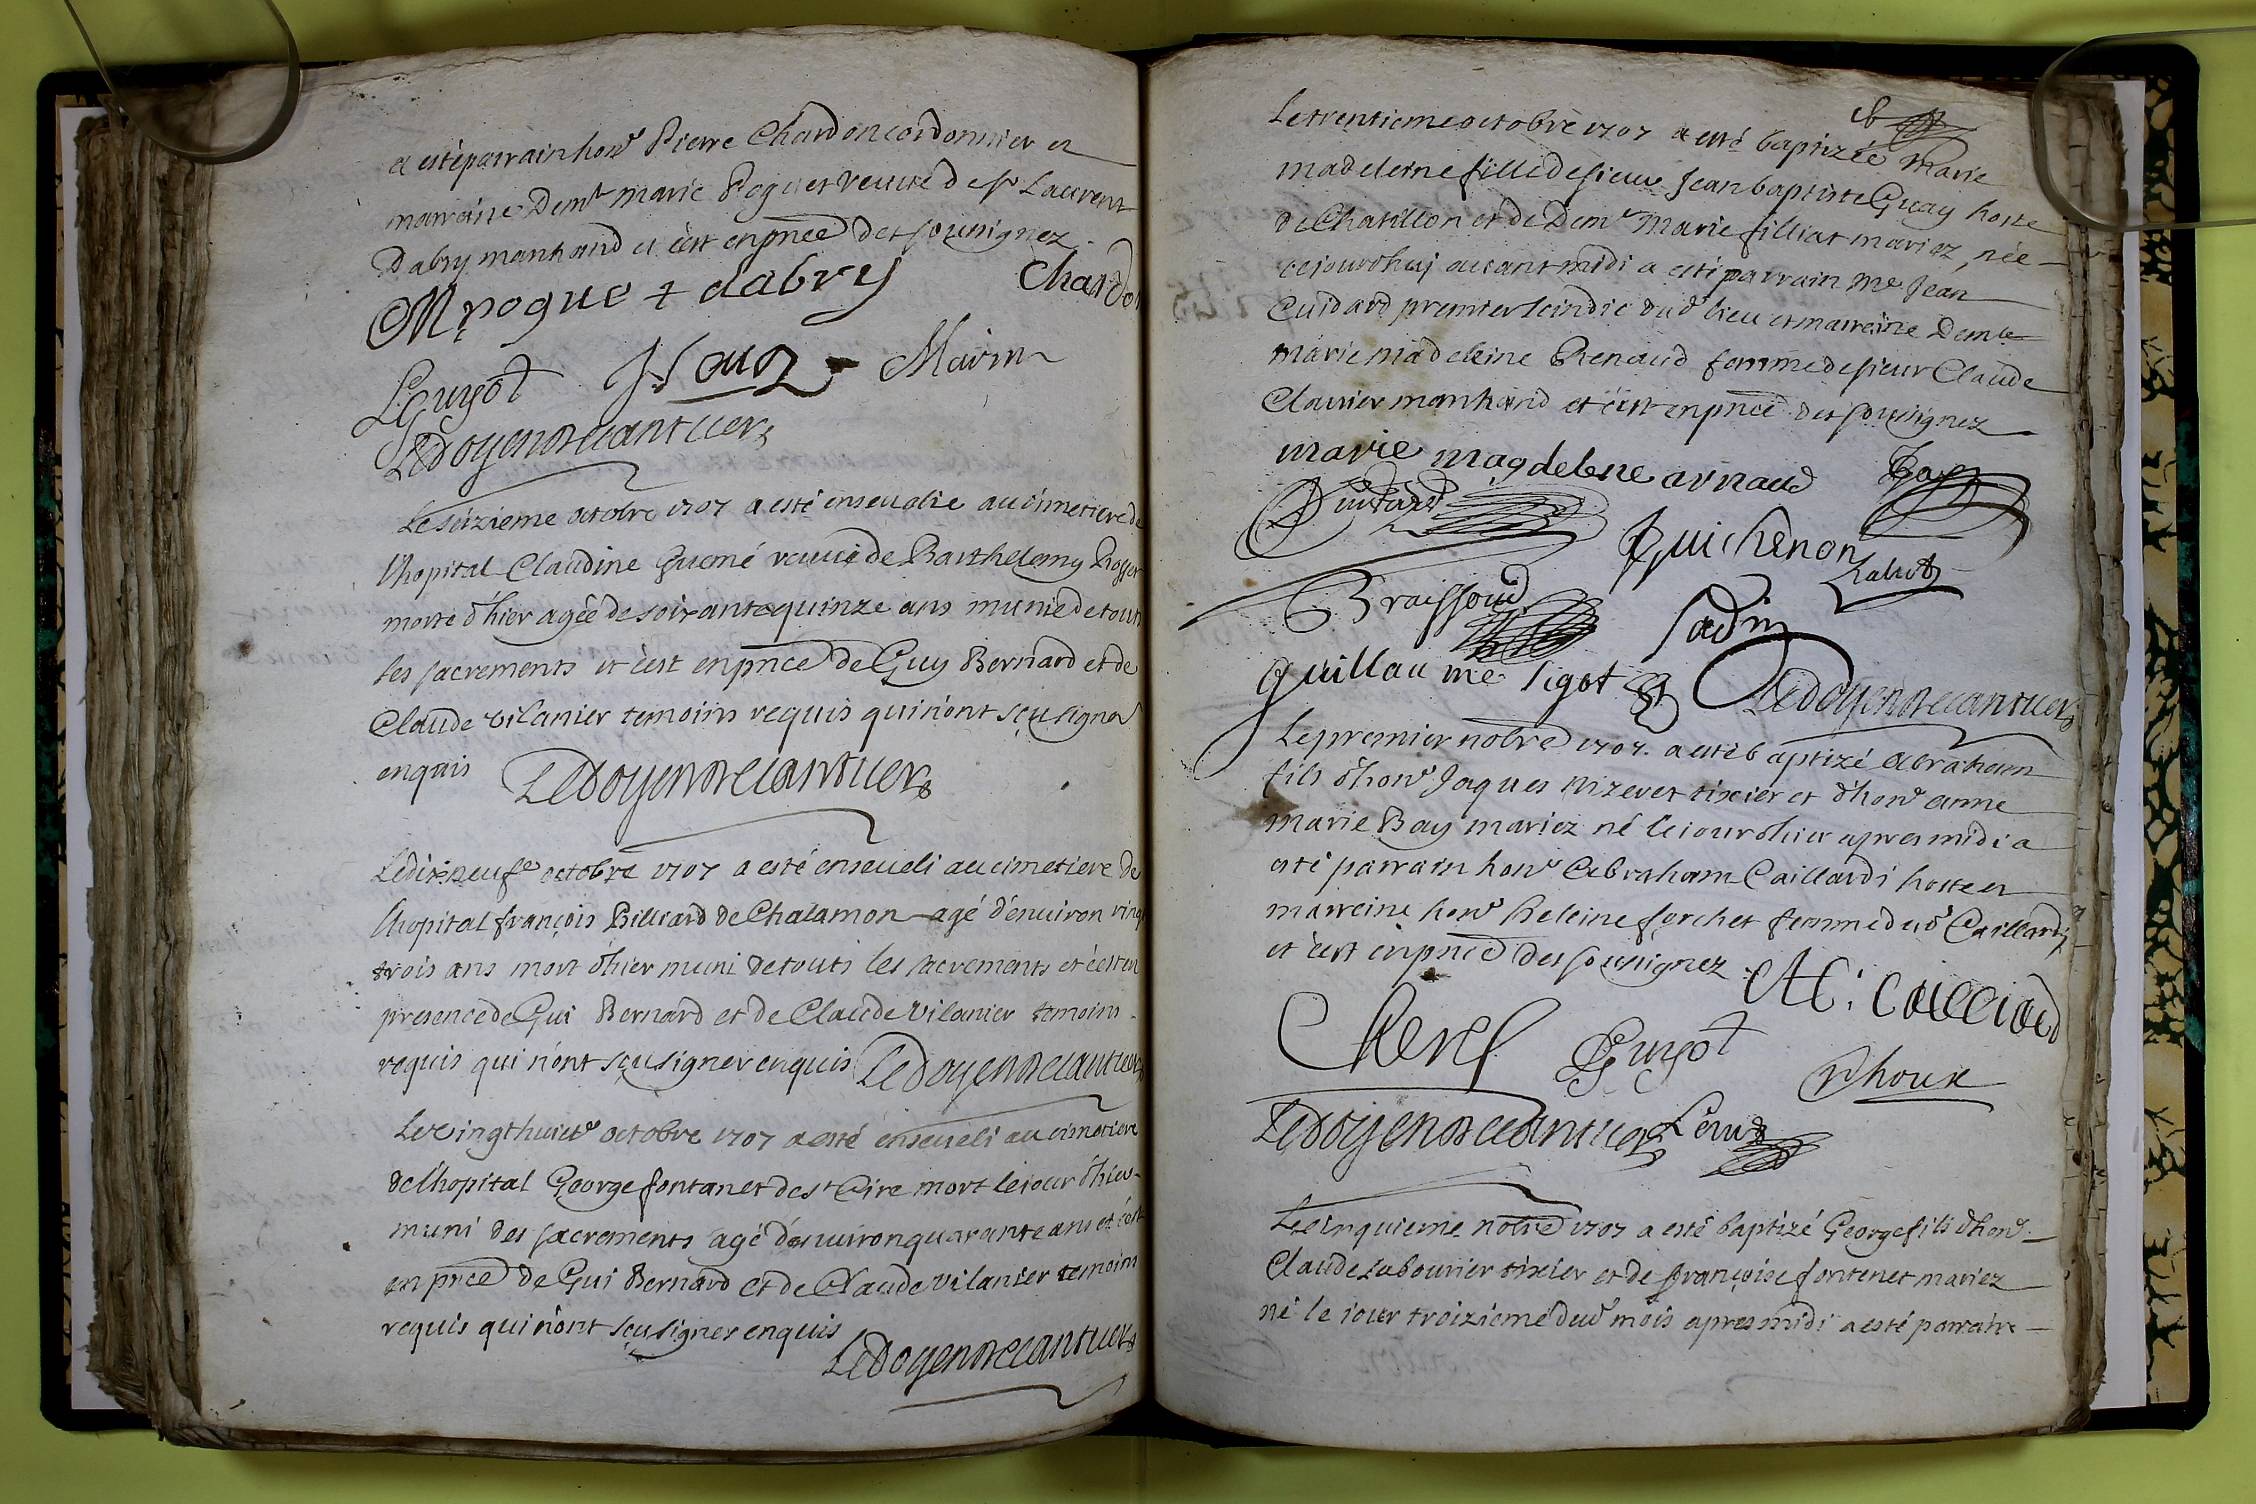 a esté parrain hon^e Pierre Chardon cordonnier et
marraine Dem^lle Marie Poguet veuve de s^r Laurent
Dabry marchand et c'est en pñce des sousignez
M pogue + dabry Chardon
LGuyot Marin
Ledoyen Decantuern
Le seizieme octobre 1707 a esté ensevelie au cimetiere de
l'hopital Claudine Guemé veuve de Barthelemy Roger
morte d'hier agée de soixante quinze ans munie de touts
les sacrements et c'est en pñce de Guy Bernard et de
Claude vilanier temoins requis qui n'ont sçu signer
enquis Ledoyen Decantuern
Le dixneuf^e octobre 1707 a esté enseveli au cimetiere de
l'hopital françois Billiard de Chalamon agé d'environ vingt
trois ans mort d'hier muni de touts les sacrements et c'est en
presence de Gui Bernard et de Claude vilanier temoins
requis qui n'ont sçu signer enquis Ledoyen Decantuern
Le vingthuict^e octobre 1707 a esté enseveli au cimetiere
de l'hopital George fontanet de s^t Cire mort le jour d'hier
muni des sacrements agé d'environ quarante ans et c'est
en pñce de Gui Bernard et de Claude vilanier temoins
requis qui n'ont sçu signer enquis
Ledoyen Decantuern
Le trentieme octobre 1707 a esté baptizée Marie
madeleine fille de sieur Jean baptiste Guay hoste
de Chatillon et de Dem^e Marie filliat mariez née
cejourd'huj avant midi a esté parrain M^e Jean
Cuidard premier scindic dud^t lieu et marreine Dem^lle
marie madeleine Renaud femme de sieur Claude
Clavier marchand et c'est en pñce des sousignez
marie magdelene arnaud Gay
Cuidard
Guichenon
Brossoud Sadin
guillaume sigot Ledoyen Decantuern
Le premier nobre 1707 a esté baptizé abraham
fils d'hon^e Jaques Nizeret tixier et d'hon^e anne
marie Bay mariez né le jour d'hier apres midi a
esté parrain hon^e Abraham Caillardi hoste et
marreine hon^e heleine forchet femme dud^t Caillardi
et c'est en pñce des sousignez AC. Cailliard
LGuyot Rhoux
Ledoyen Decantuern
Le cinquieme nobre 1707 a esté baptizé George fils d'hon^e
Claude Labourier tixier et de françoise fontenet mariez
né le jour troizieme dud^t mois apres midi a esté parrain